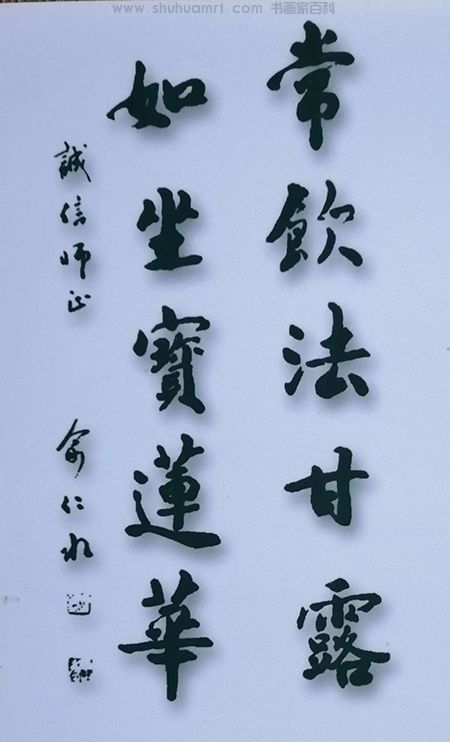 www.shuhuamrt.com 书画家百科
常飲法甘露
如坐寶蓮華
誠信师正
俞仁水